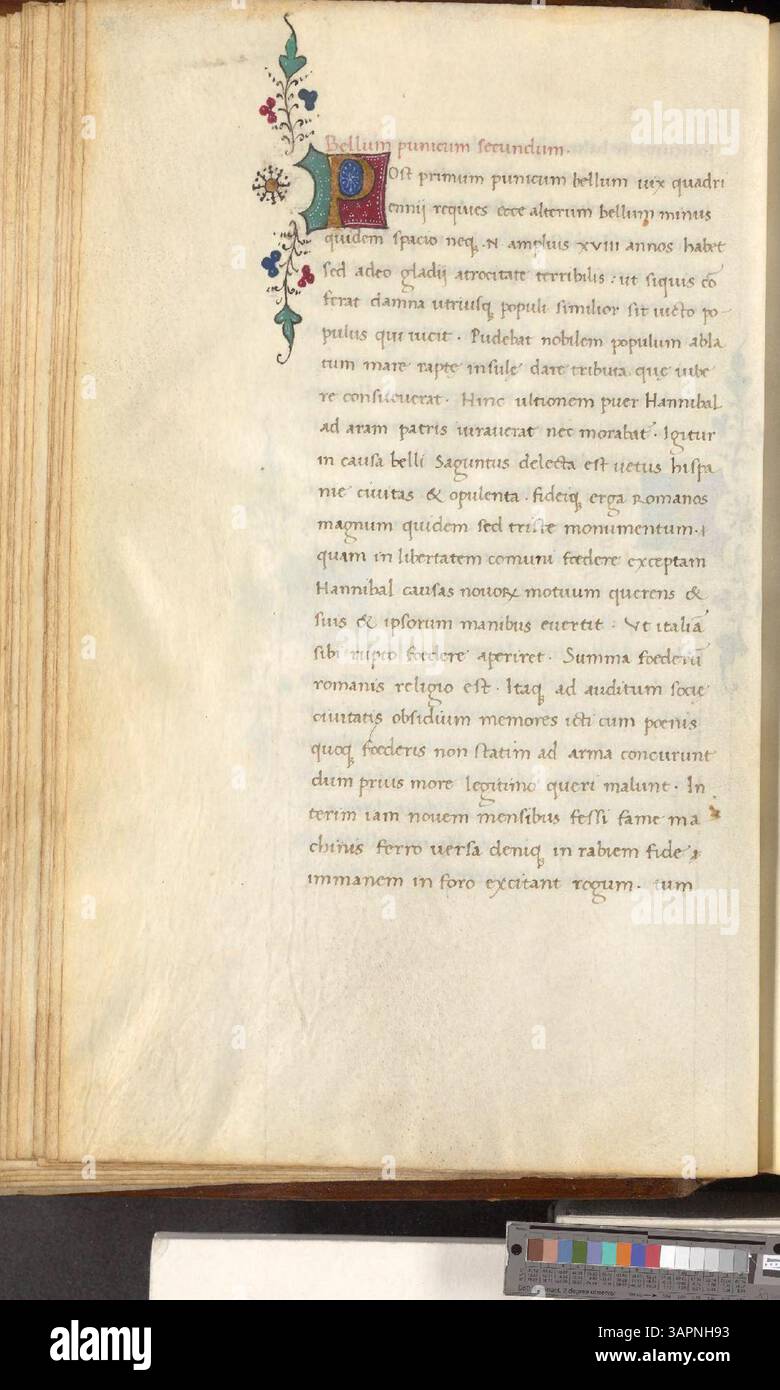 Bellum punicum secundum.
POst primum punicum bellum uix quadri
ennij requies ecce alterum bellum minus
quidem spacio neq; .N. amplius XVIII annos habet
sed adeo gladij atrocitate terribilis : ut siquis cō
ferat damna utriusq; populi similior sit uicto po-
pulus qui uicit . Pudebat nobilem populum abla
tum mare rapte insule dare tributa que iube
re consueuerat . Hinc ultionem puer Hannibal
ad aram patris iurauerat nec morabat̄ . Igitur
in causa belli Saguntus delecta est uetus hispa
nie ciuitas & opulenta . fideiq; erga Romanos
magnum quidem sed triste monumentum .
quam in libertatem comuni foedere exceptam
Hannibal causas nouoꝝ motuum querens &
suis & ipsorum manibus euertit . Vt italiā
sibi rupto foedere aperiret . Summa foederū
romanis religio est . Itaq; ad auditum socię
ciuitatis obsidium memores icti cum poenis
quoq; foederis non statim ad arma concurunt
dum prius more legitimo queri malunt . In
terim iam nouem mensibus fessi fame ma
chinis ferro uersa deniq; in rabiem fide
immanem in foro excitant rogum . tum
alamy
Image ID: 3APNH93
www.alamy.com